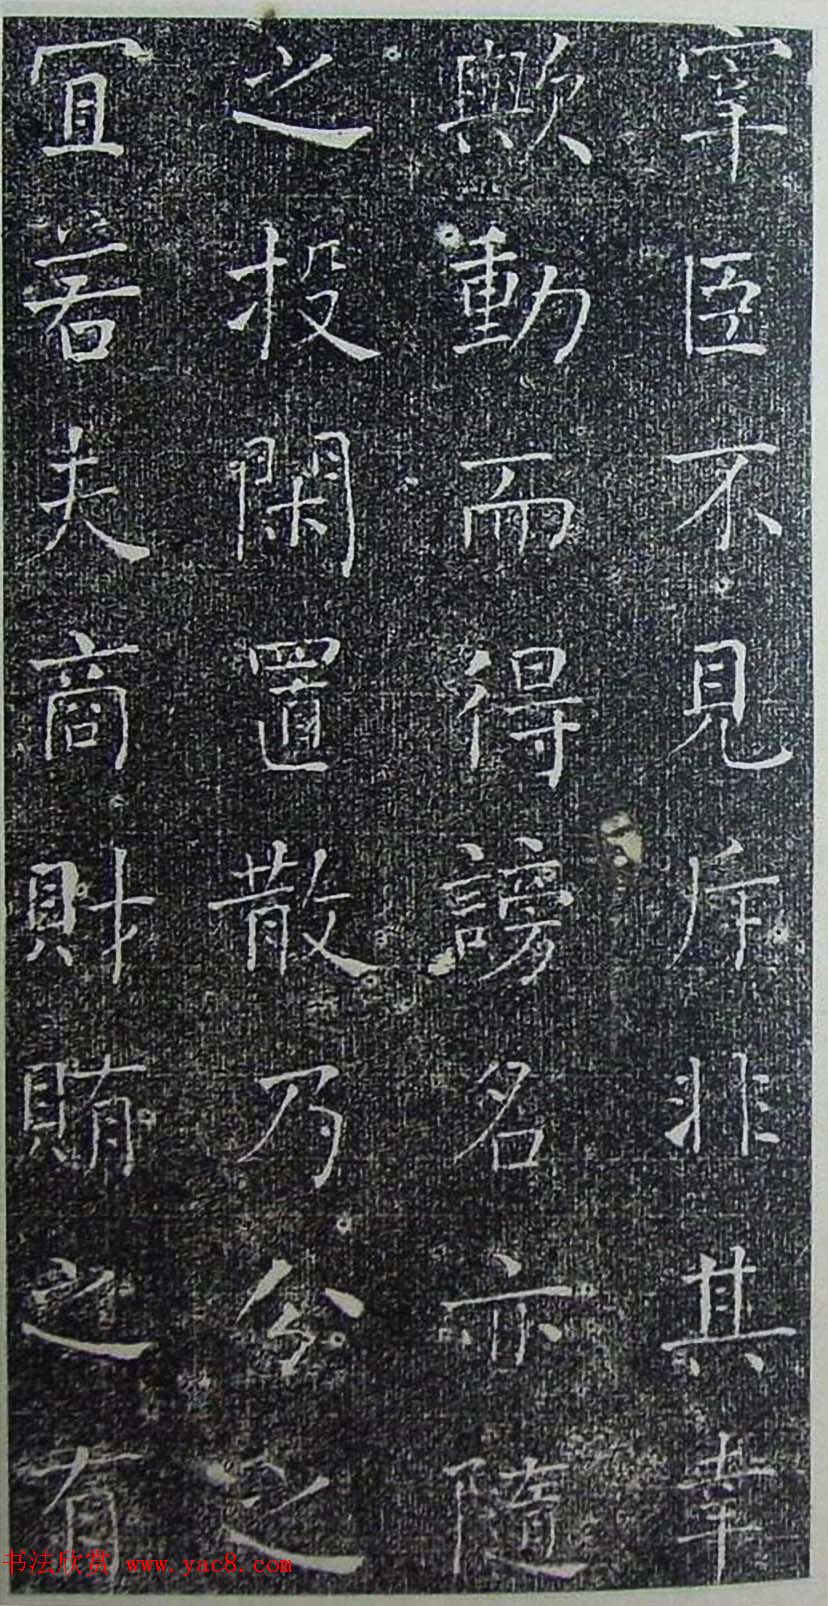 宰臣不見斥非其幸
歟動而得謗名亦隨
之投閑置散乃分之
宜若夫商財賄之有
书法欣赏 www.yac8.com